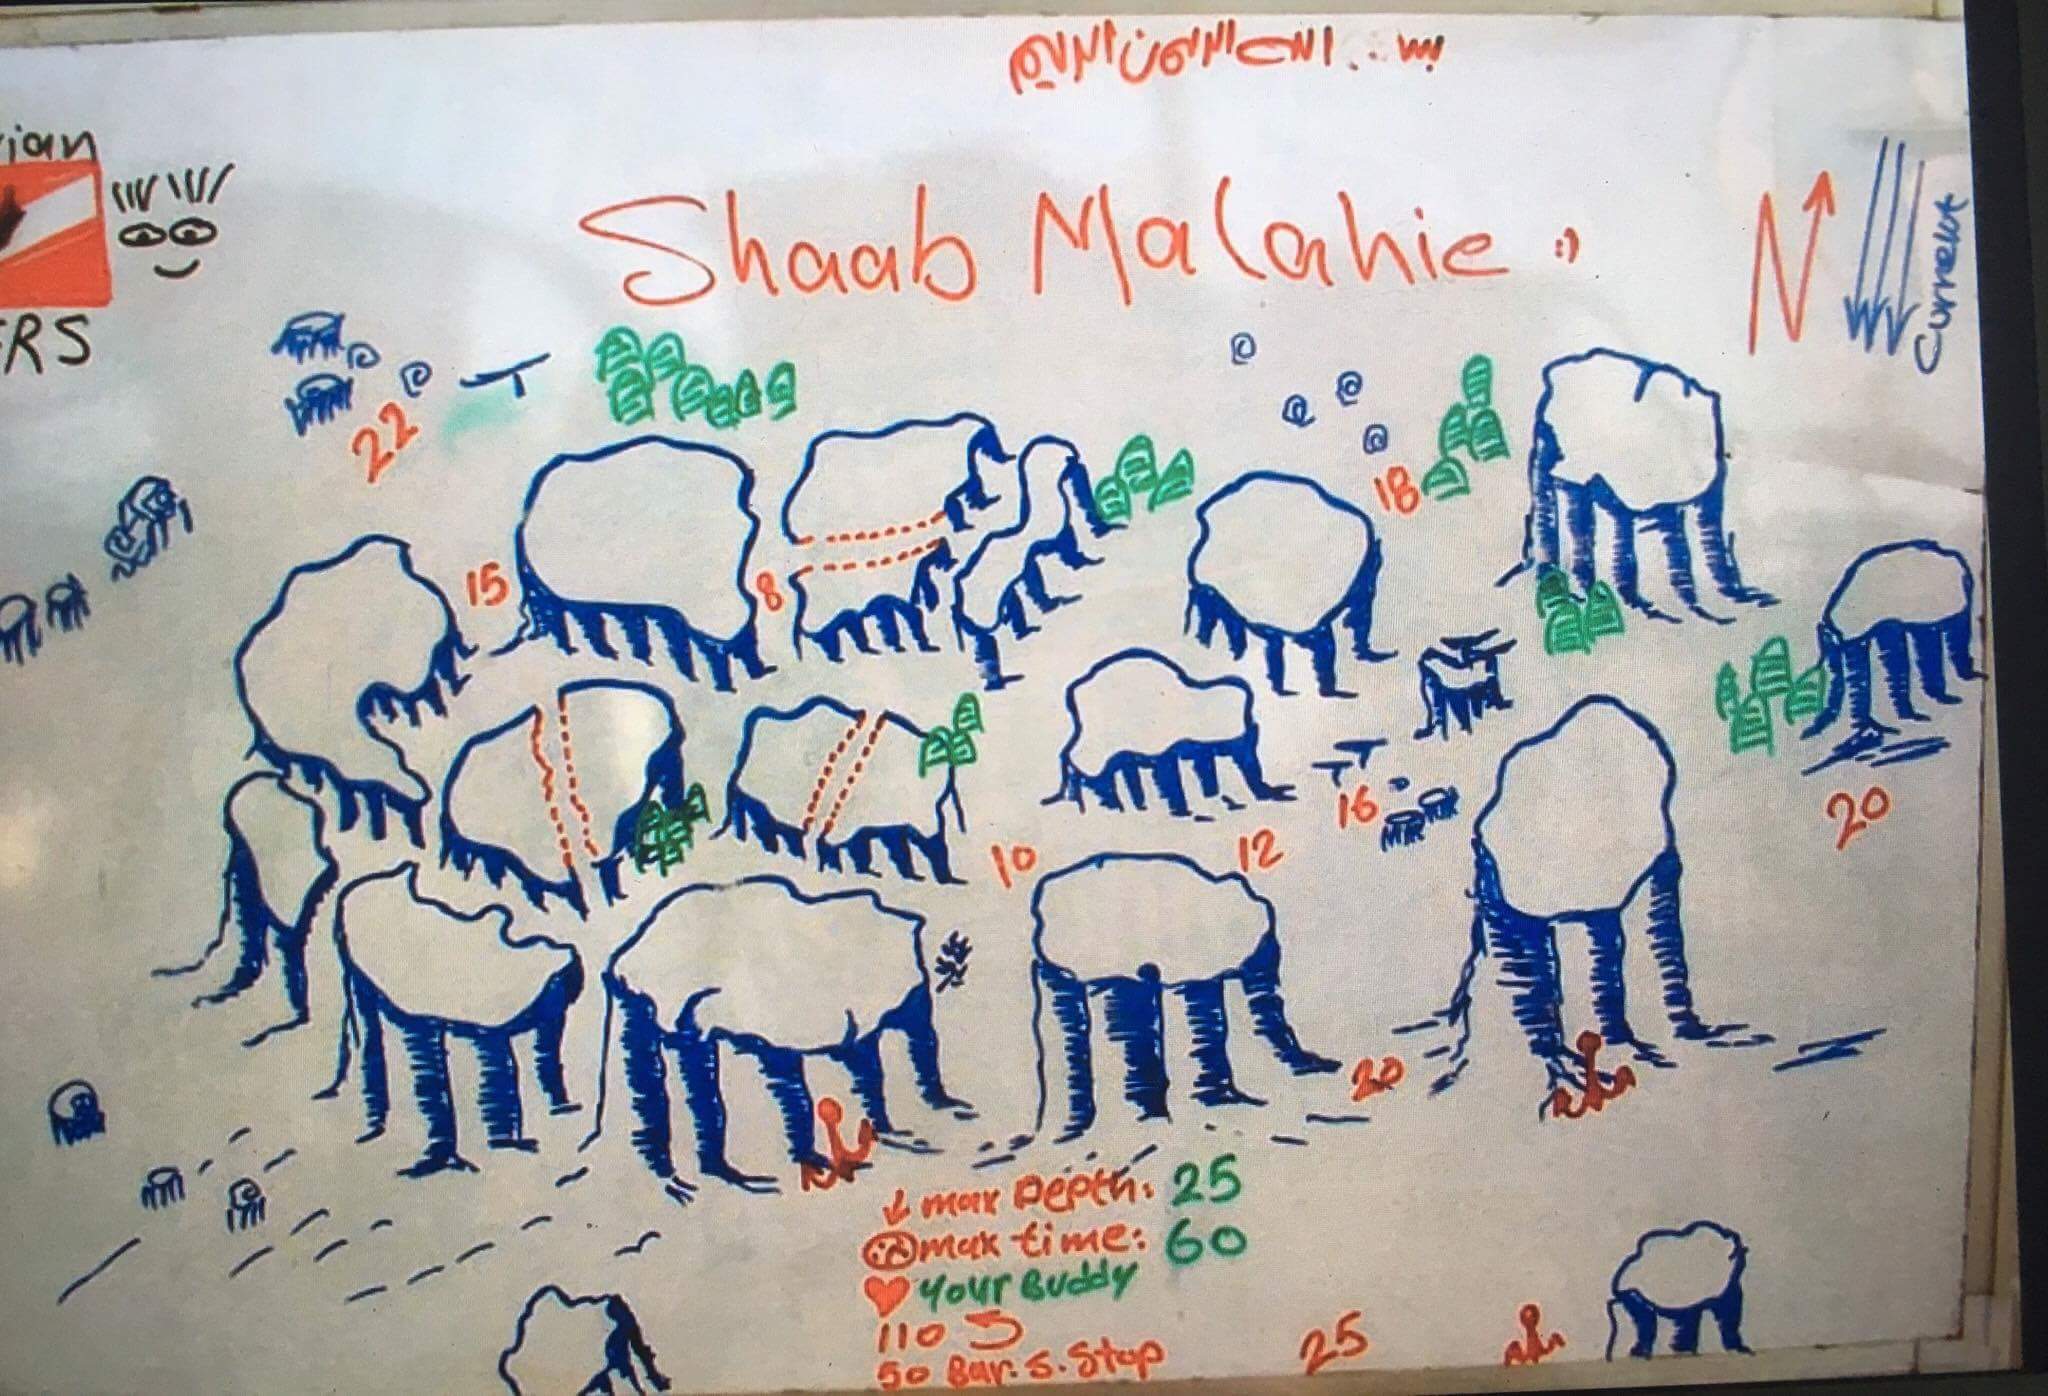 بسم الله الرحمن الرحيم
ian
RS
Shaab Malahie :)
N
Current
22
18
15
8
16
20
10
12
20
max Depth: 25
max time: 60
your Buddy
110
50 Bar. S. Stop
25